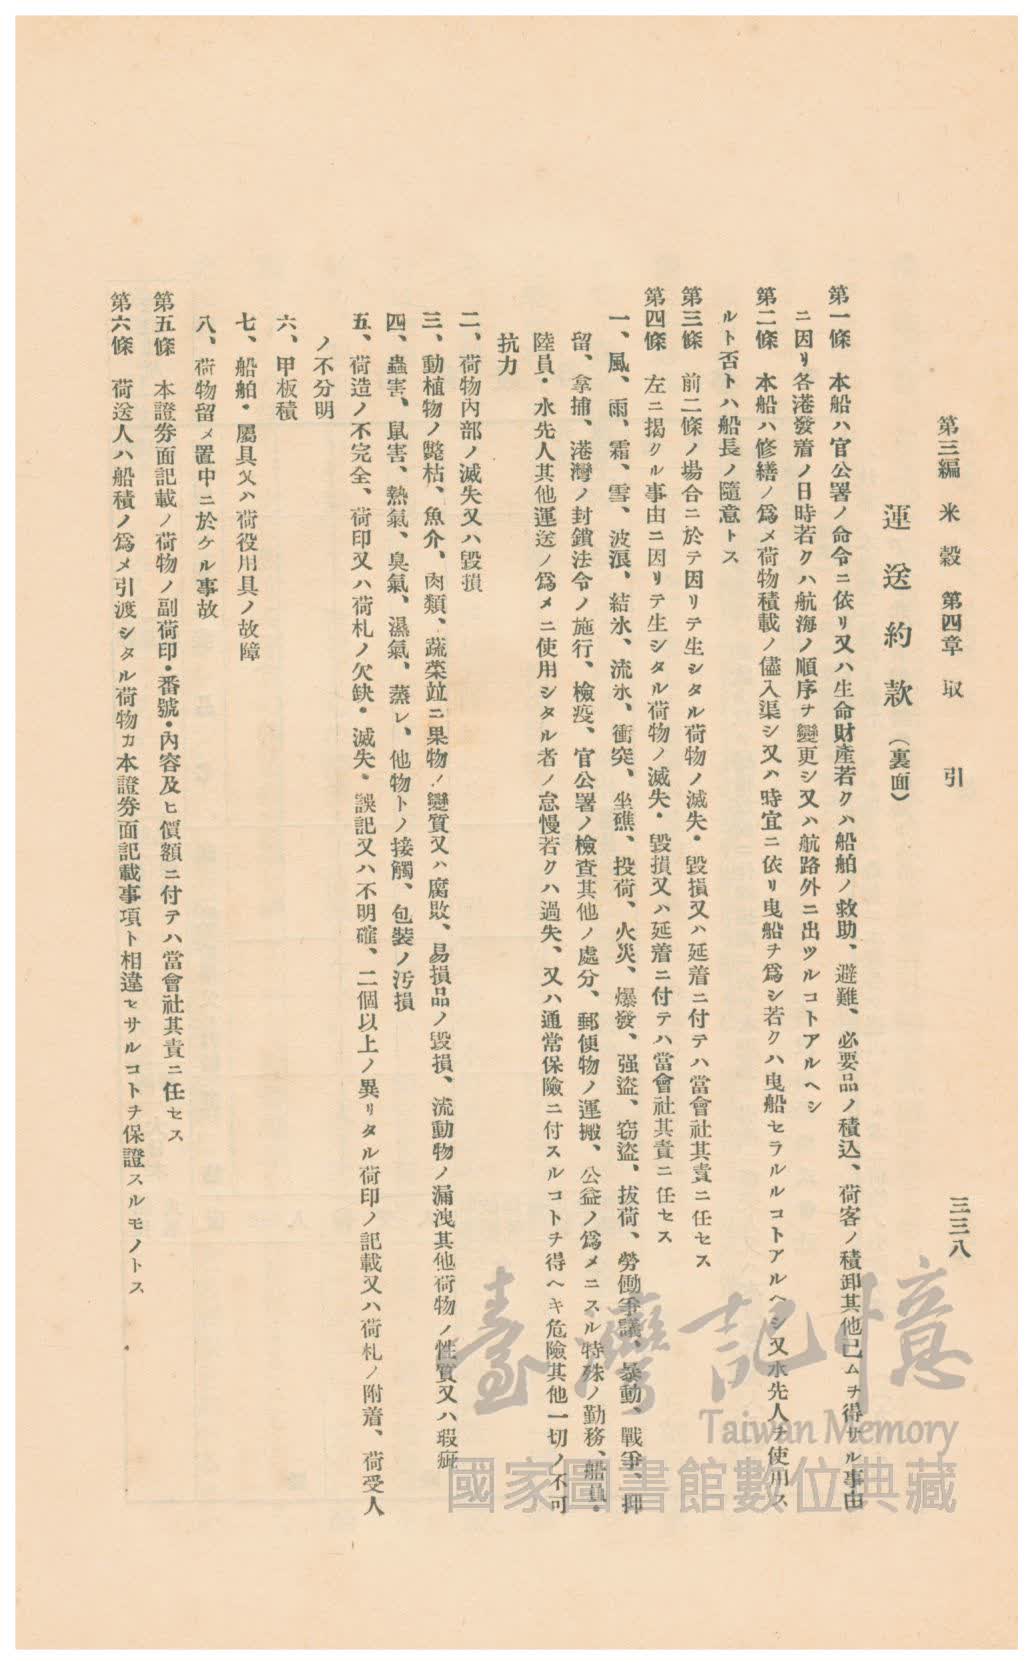 第三編 米穀 第四章 取引
三三八
運送約款（裏面）
第一條 本船ハ官公署ノ命令ニ依リ又ハ生命財產若クハ船舶ノ救助、避難、必要品ノ積込、荷客ノ積卸其他已ムヲ得サル事由
ニ因リ各港發着ノ日時若クハ航海ノ順序ヲ變更シ又ハ航路外ニ出ツルコトアルヘシ
第二條 本船ハ修繕ノ爲メ荷物積載ノ儘入渠シ又ハ時宜ニ依リ曳船ヲ爲シ若クハ曳船セラルルコトアルヘシ又水先人ヲ使用ス
ルト否トハ船長ノ隨意トス
第三條 前二條ノ場合ニ於テ因リテ生シタル荷物ノ滅失・毀損又ハ延着ニ付テハ當會社其責ニ任セス
第四條 左ニ揭クル事由ニ因リテ生シタル荷物ノ滅失・毀損又ハ延着ニ付テハ當會社其責ニ任セス
一、風、雨、霜、雪、波浪、結氷、流氷、衝突、坐礁、投荷、火災、爆發、强盜、窃盜、拔荷、勞働爭議、暴動、戰爭、抑
留、拿捕、港灣ノ封鎖法令ノ施行、檢疫、官公署ノ檢查其他ノ處分、郵便物ノ運搬、公益ノ爲メニスル特殊ノ勤務、船員・
陸員・水先人其他運送ノ爲メニ使用シタル者ノ怠慢若クハ過失、又ハ通常保險ニ付スルコトヲ得ヘキ危險其他一切ノ不可
抗力
二、荷物內部ノ滅失又ハ毀損
三、動植物ノ斃枯、魚介、肉類、蔬菜竝ニ果物ノ變質又ハ腐敗、易損品ノ毀損、流動物ノ漏洩其他荷物ノ性質又ハ瑕疵
四、蟲害、鼠害、熱氣、臭氣、濕氣、蒸レ、他物トノ接觸、包裝ノ汚損
五、荷造ノ不完全、荷印又ハ荷札ノ欠缺・滅失・誤記又ハ不明確、二個以上ノ異リタル荷印ノ記載又ハ荷札ノ附着、荷受人
ノ不分明
六、甲板積
七、船舶・屬具又ハ荷役用具ノ故障
八、荷物留メ置中ニ於ケル事故
第五條 本證券面記載ノ荷物ノ副荷印・番號・內容及ヒ價額ニ付テハ當會社其責ニ任セス
第六條 荷送人ハ船積ノ爲メ引渡シタル荷物カ本證券面記載事項ト相違セサルコトヲ保證スルモノトス
臺灣記憶
Taiwan Memory
國家圖書館數位典藏